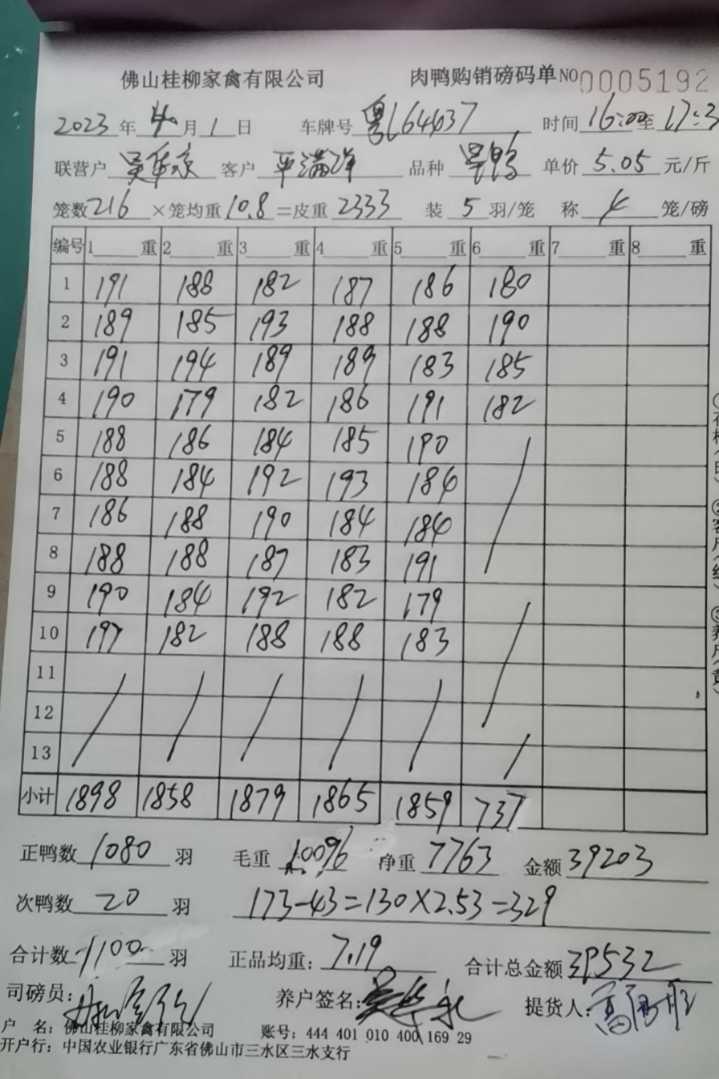 佛山桂柳家禽有限公司 肉鸭购销磅码单 NO 0005192
2023 年 4 月 1 日 车牌号 粤L64637 时间 16:00 至 17:3
联营户 客户 品种 单价 5.05 元/斤
笼数 216 ×笼均重 10.8 =皮重 2333 装 5 羽/笼 称 4 笼/磅
编号 1 重 2 重 3 重 4 重 5 重 6 重 7 重 8 重
1 191 188 182 187 186 180
2 189 185 193 188 188 190
3 191 194 189 189 183 185
4 190 179 182 186 191 182
5 188 186 184 185 190
6 188 184 192 193 184
7 186 188 190 184 184
8 188 188 187 183 191
9 190 184 192 182 179
10 197 182 188 188 183
11
12
13
小计 1898 1858 1879 1865 1859 737
正鸭数 1080 羽 毛重 10096 净重 7763 金额 39203
次鸭数 20 羽 173-43=130×2.53=329
合计数 1100 羽 正品均重: 7.19 合计总金额 39532
司磅员: 养户签名: 提货人:
户 名: 佛山桂柳家禽有限公司 账号: 444 401 010 400 169 29
开户行: 中国农业银行广东省佛山市三水区三水支行